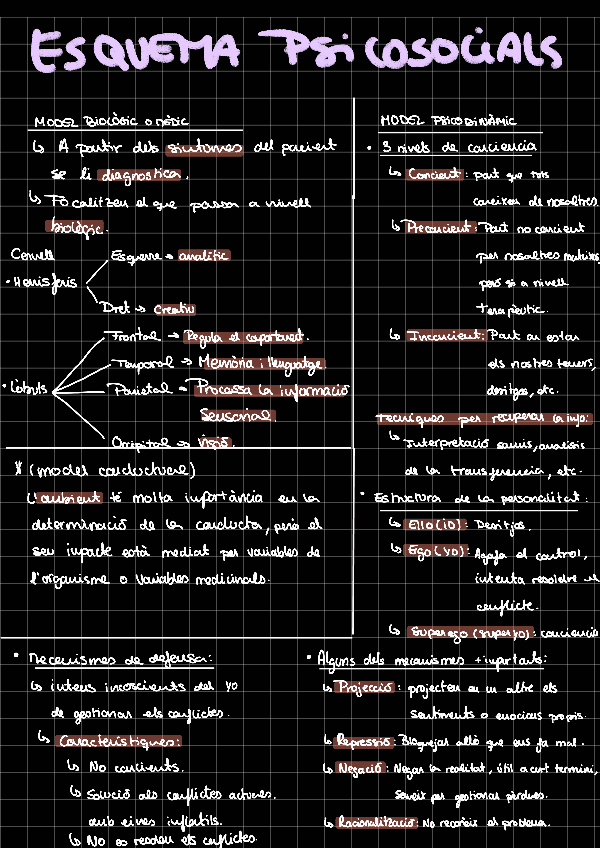 ESQUEMA PSICOSOCIALS
MODEL BIOLÒGIC O MÈDIC
↳ A partir dels símtomes del pacient
se li diagnostica.
↳ Focalitzen el que passa a nivell
biològic.
Cervell
• Hemisferis
Esquerre → analític
Dret → Creatiu
• Lòbuls
Frontal → Regula el comportament.
Temporal → Memòria i llenguatge.
Parietal → Processa la informació
Sensorial.
Occipital → Visió.
* (model conductual)
L'ambient té molta importància en la
determinació de la conducta, però el
seu impacte està mediat per variables de
l'organisme o variables medicinals.
MODEL PSICODINÀMIC
• 3 nivells de conciencia
↳ Concient: part que tots
coneixem de nosaltres
↳ Preconcient: Part no concient
per nosaltres mateixos,
però si a nivell
terapèutic.
↳ Inconcient: Part on estan
els nostres temors,
desitjos, etc.
Tècniques per recuperar la info:
↳ Interpretació somnis, anàlisis
de la transferencia, etc.
• Estructura de la personalitat:
↳ Ello (ID): Desitjos,
↳ Ego (yo): Agafa el control,
intenta resoldre el
conflicte.
↳ Superego (superyo): conciencia
• Mecanismes de defensa:
↳ intens inconscients del yo
de gestionar els conflictes.
↳ Característiques:
↳ No concients.
↳ Solució als conflictes actuals
amb eines infantils.
↳ No es resolen els conflictes.
• Alguns dels mecanismes + importants:
↳ Projecció: projecten en un altre els
sentiments o emocions propis.
↳ Repressió: Bloquejar allò que ens fa mal.
↳ Negació: Negar la realitat, útil a curt termini,
serveix per gestionar pèrdues.
↳ Racionalització: No reconeix el problema.